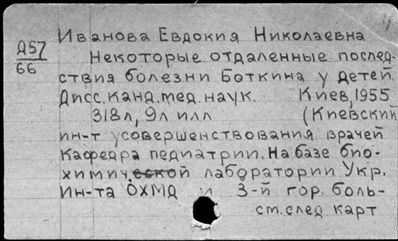 Иванова Евдокия Николаевна
Д57
66
Некоторые отдаленные послед-
ствия болезни Боткина у детей.
Дисс. канд. мед. наук. Киев, 1955
318л, 9л илл (Киевский
ин-т усовершенствования врачей
Кафедра педиатрии. На базе био-
химической лаборатории Укр.
Ин-та ОХМД и 3-й гор. боль-
ст. след карт